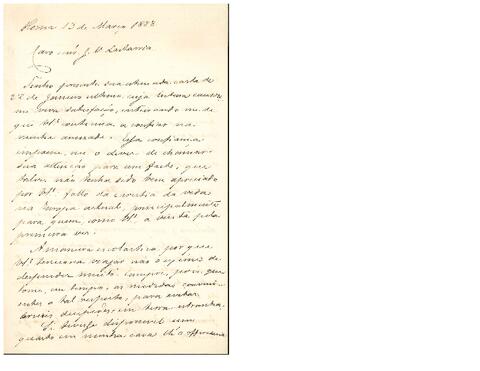 Roma 13 de Março 1888
Caro snr. J. V.
Tenho presente sua estimada carta de
22 de Janeiro ultimo, cuja leitura causou
me viva satisfação, certificando me de
que V.ª continúa a confiar na
minha amizade. Essa confiança
impoem me o dever de chamar
sua attenção para um facto, que
talvez não tenha sido bem apreciado
por V.ª falto da esperiencia da vida
na Europa actual, principalmente
para quem, como V.ª a visita pela
primeira vez.
A maneira por que
V.ª tenciona viajar não o exime de
despender muito. Cumpre, pois, que
tome, em tempo, as medidas conveni-
entes a tal respeito, para evitar
em terra estranha.
Si tivesse disponivel um
quarto em minha casa lh'o offerecia